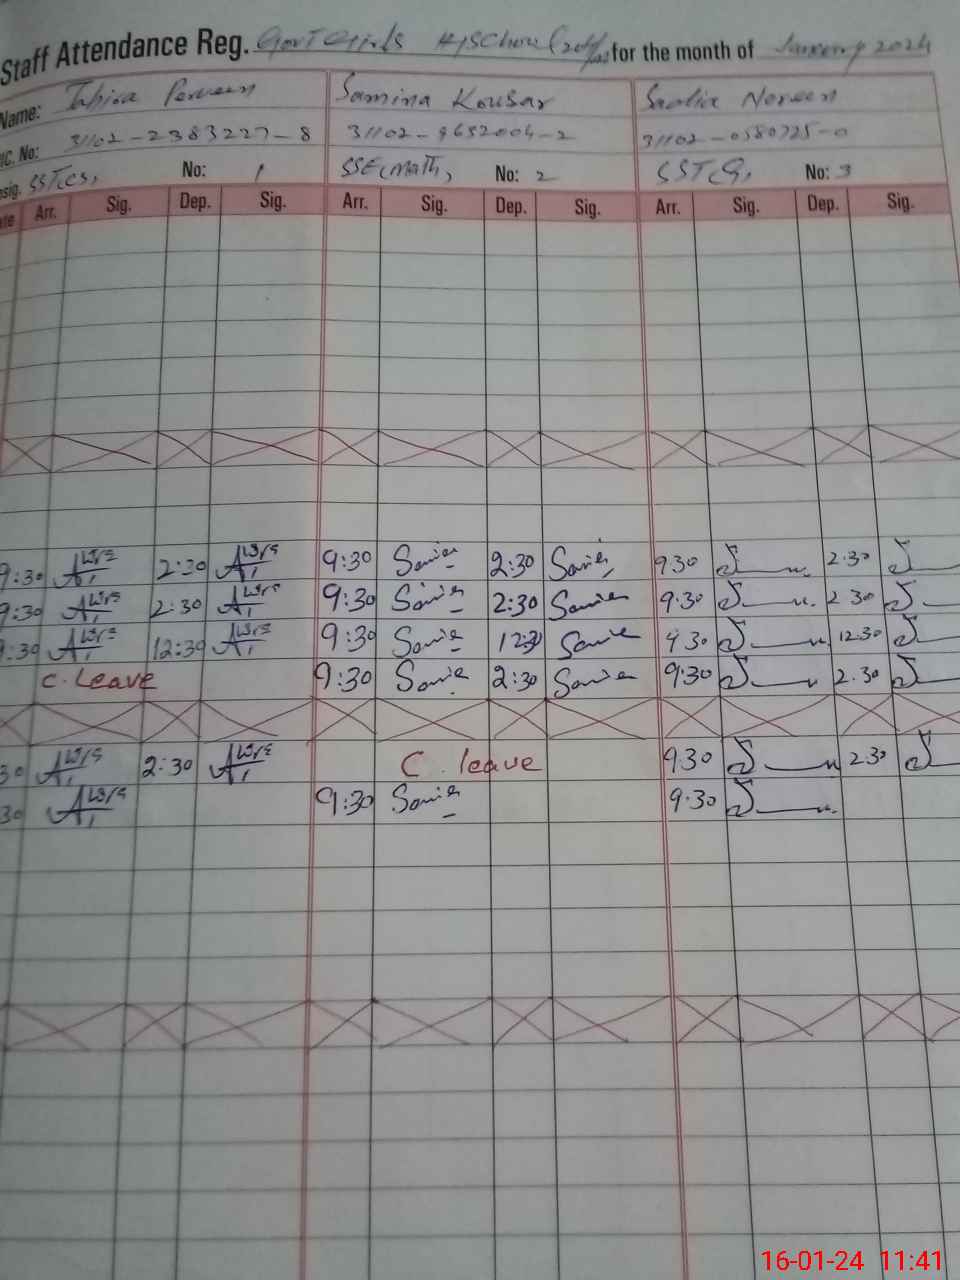 Staff Attendance Reg. Govt Girls H/School for the month of January 2024
Name: Tahira Perveen Samina Kousar Sadia Noreen
IC. No: 31102-2383227-8 31102-9652004-2 31102-0580725-0
esig. SST(CS) No: 1 SSE(Math) No: 2 SST(G) No: 3
ate Arr. Sig. Dep. Sig. Arr. Sig. Dep. Sig. Arr. Sig. Dep. Sig.
9:30 2:30 9:30 2:30 9:30 2:30
9:30 2:30 9:30 2:30 9:30 2 30
9:30 12:30 9:30 12:30 9 30 12:30
C. Leave 9:30 2:30 9:30 2.30
30 2:30 C. leave 9:30 2:30
30 9:30 9:30
16-01-24 11:41